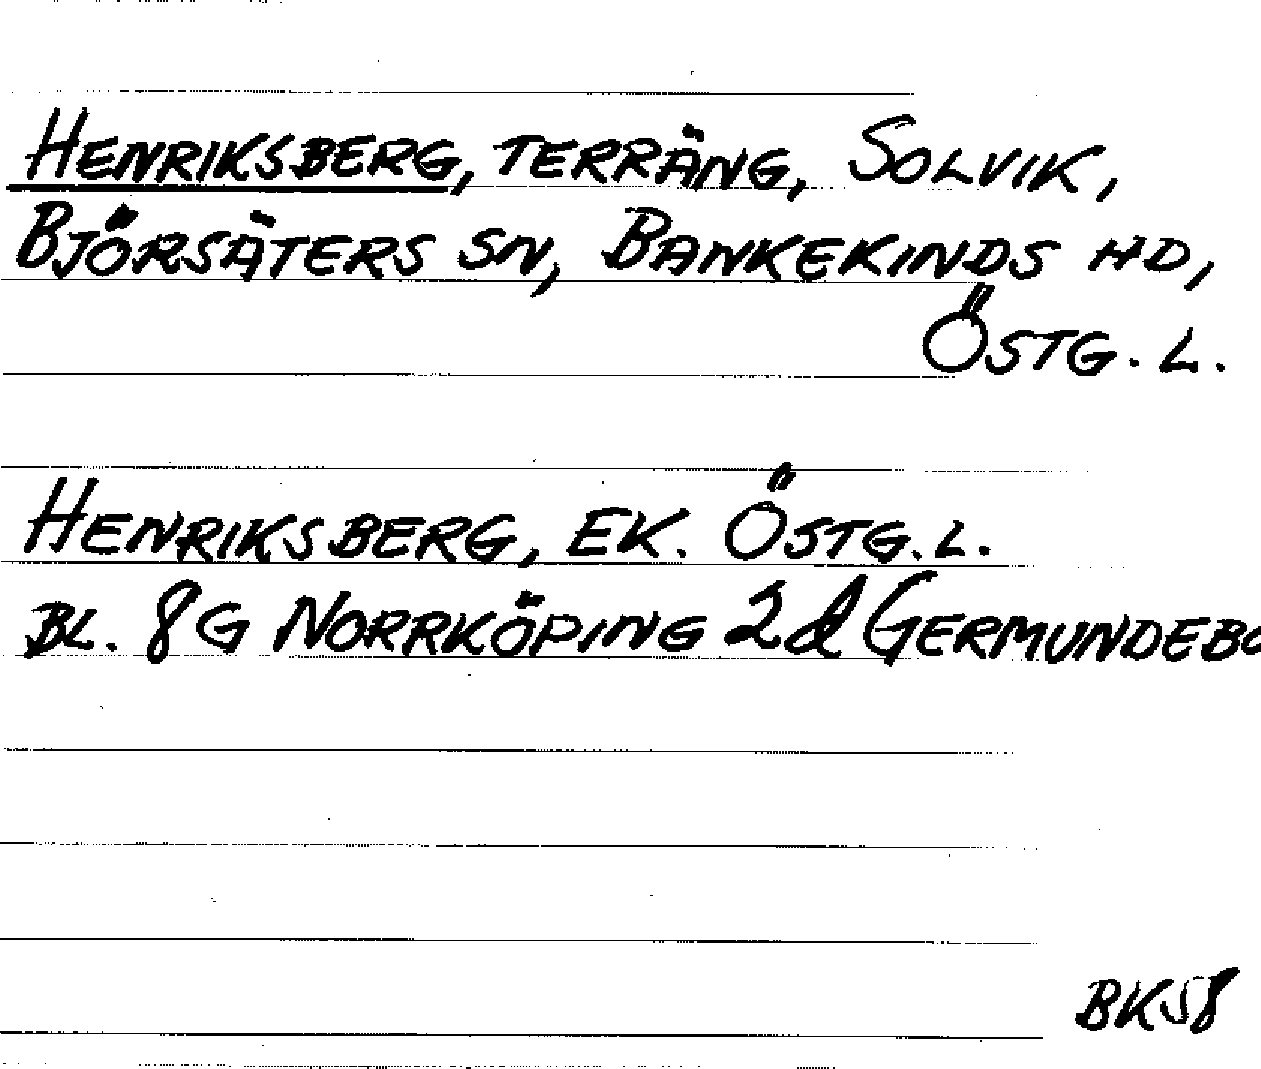 HENRIKSBERG, TERRÄNG, SOLVIK,
BJÖRSÄTERS SN, BANKEKINDS HD,
ÖSTG. L.
HENRIKSBERG, EK. ÖSTG. L.
BL. 8G NORRKÖPING 2d GERMUNDEBO
BKS8